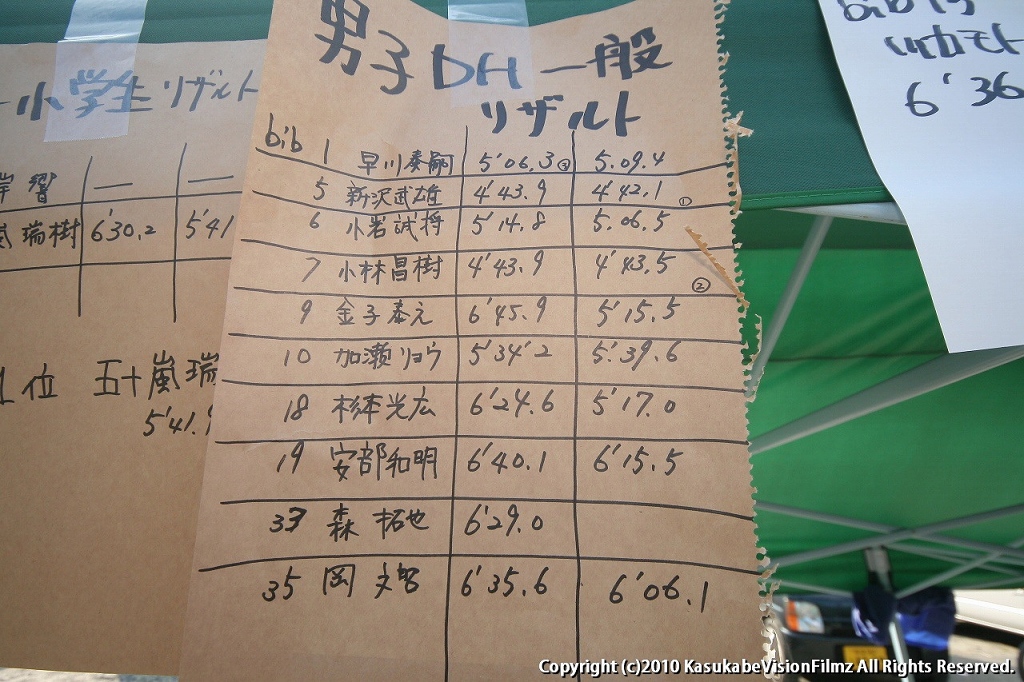 小学生 リザルト
響 — —
瑞樹 6'30.2 5'41
1位 五十嵐瑞
5'41.9
男子DH一般
リザルト
bib
1 早川泰嗣 5'06.3 ③ 5.09.4
5 新沢武雄 4'43.9 4'42.1 ①
6 小岩誠将 5'14.8 5.06.5
7 小林昌樹 4'43.9 4'43.5 ②
9 金子泰之 6'45.9 5'15.5
10 加瀬リョウ 5'34'2 5'.39.6
18 杉本光広 6'24.6 5'17.0
19 安部和明 6'40.1 6'15.5
33 森 拓也 6'29.0
35 岡 6'35.6 6'06.1
6'36
Copyright (c)2010 KasukabeVisionFilmz All Rights Reserved.